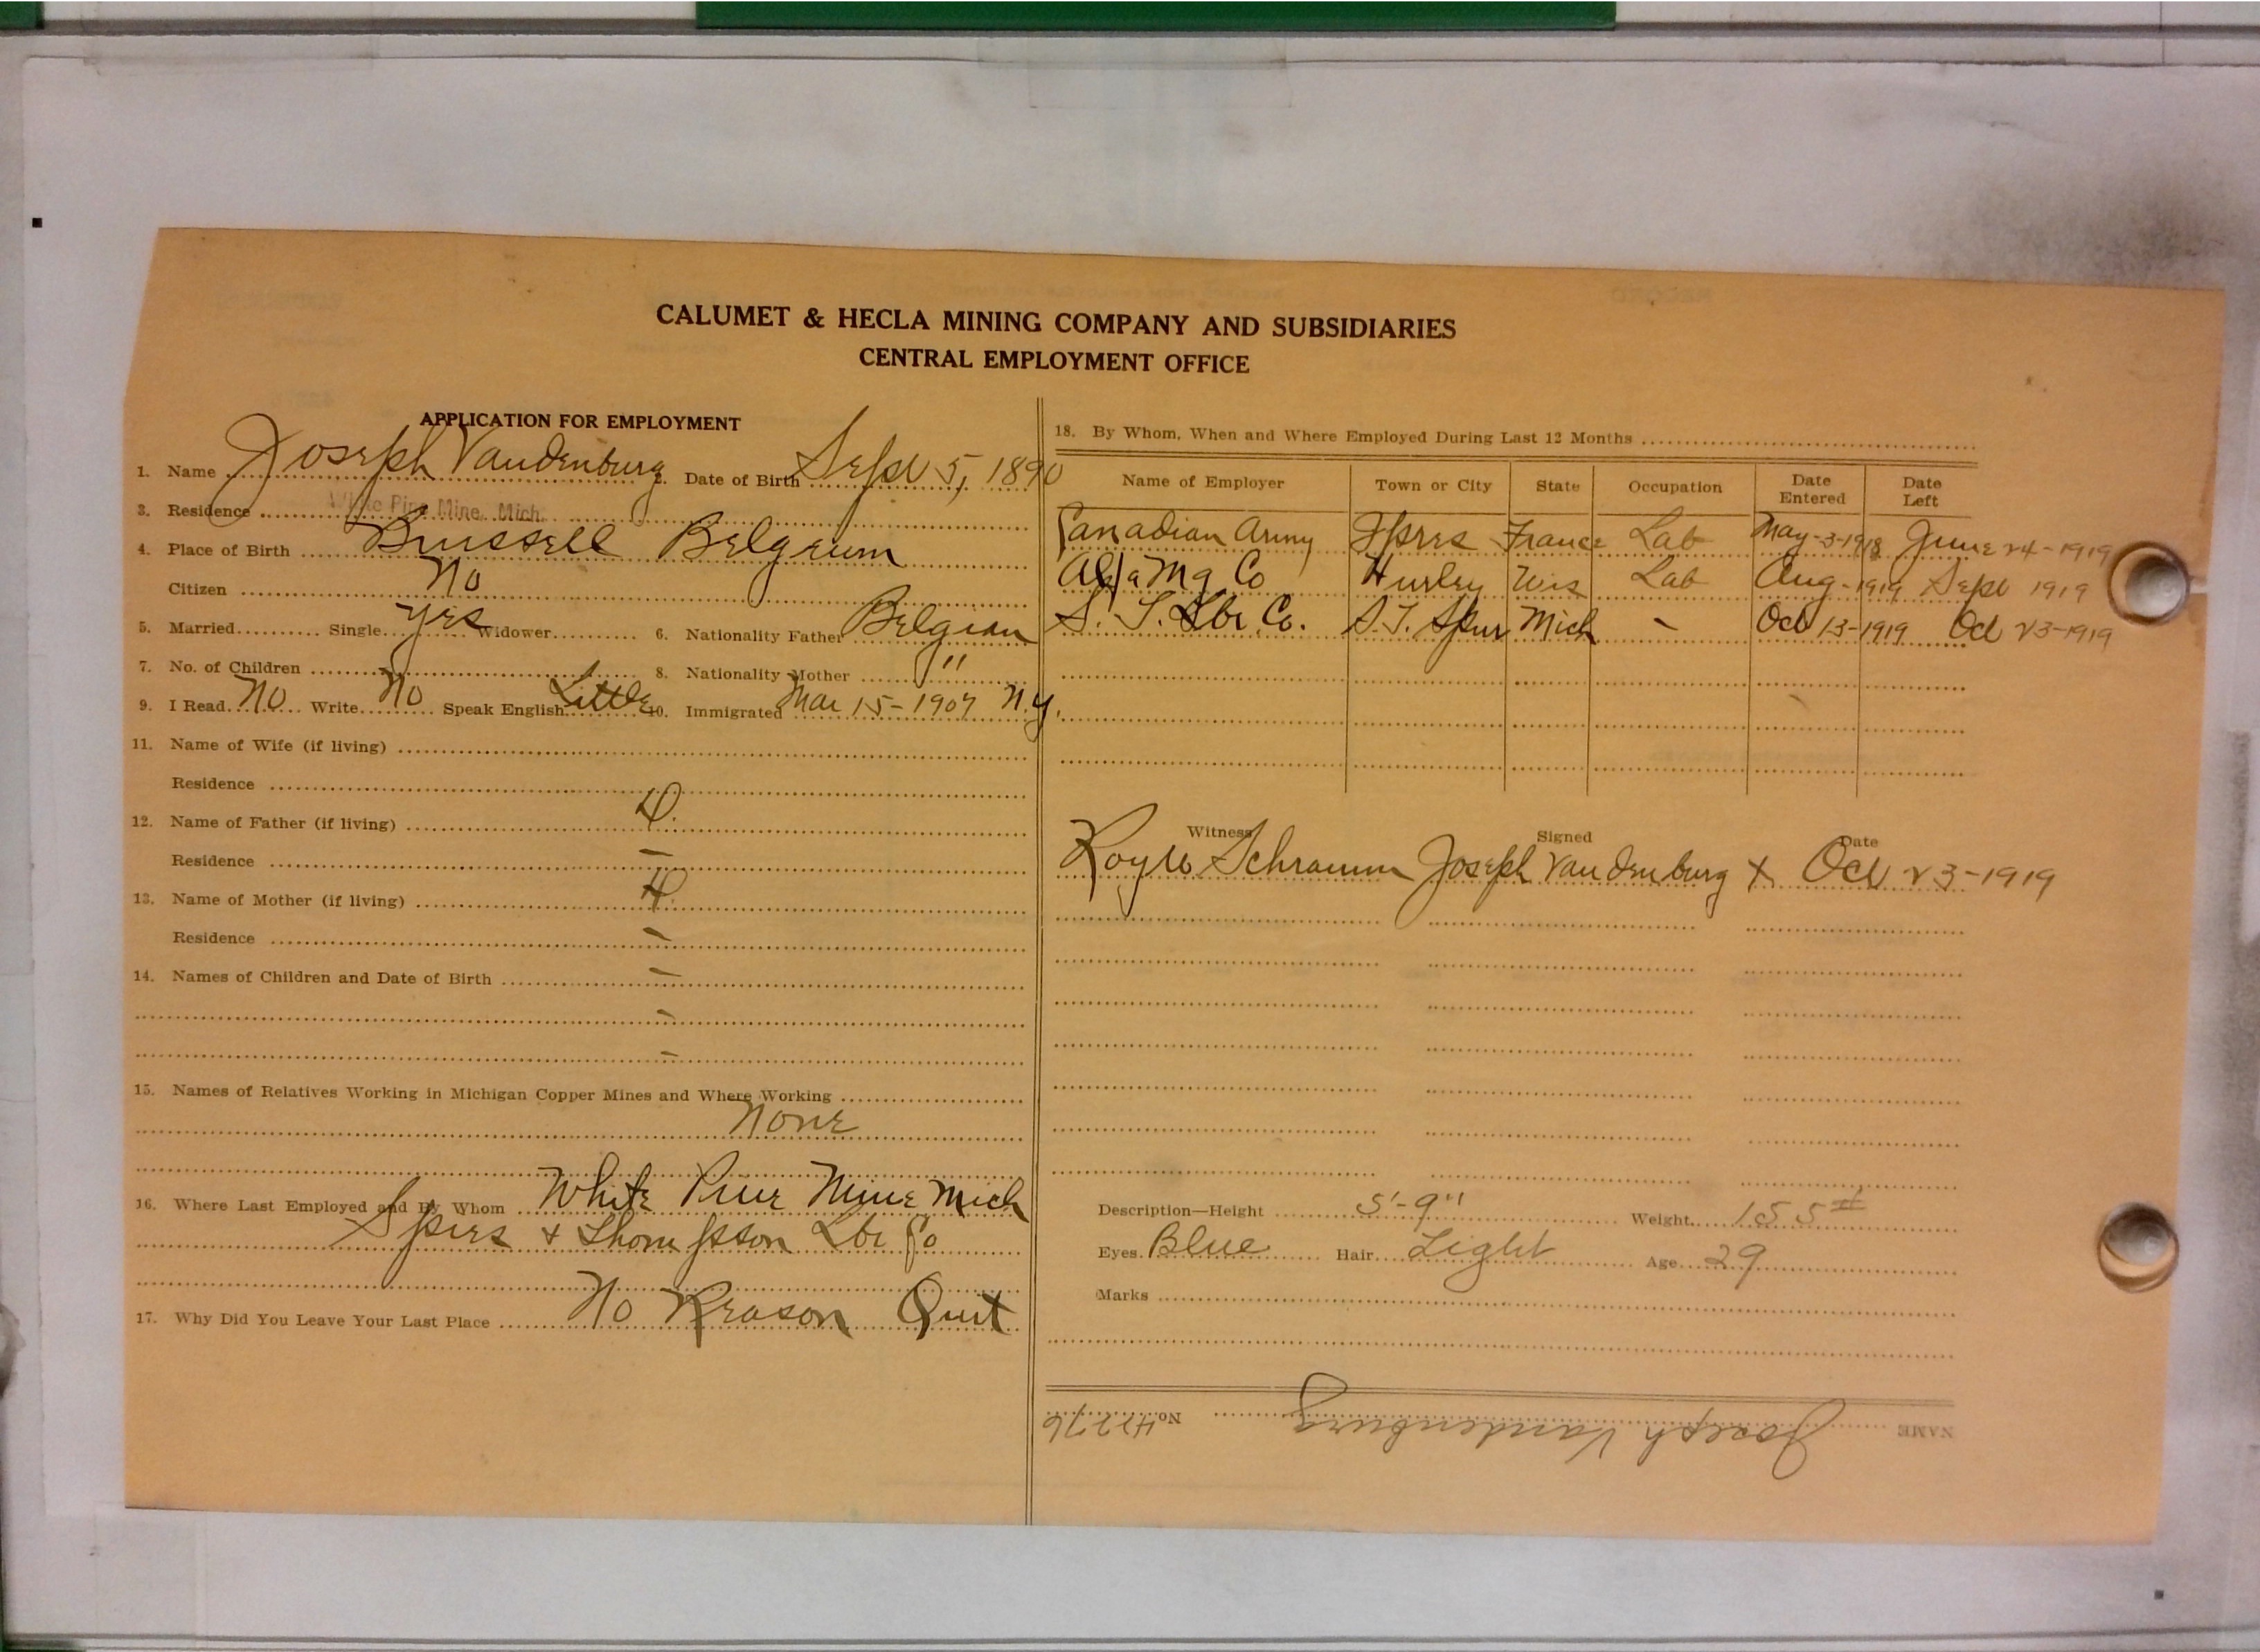 CALUMET & HECLA MINING COMPANY AND SUBSIDIARIES
CENTRAL EMPLOYMENT OFFICE
APPLICATION FOR EMPLOYMENT
1. Name Joseph Vandenburg 2. Date of Birth Sept 5, 1890
3. Residence White Pine Mine, Mich.
4. Place of Birth Brussell Belgeium
Citizen No
5. Married Single yes Widower 6. Nationality Father Belgian
7. No. of Children 8. Nationality Mother "
9. I Read No Write No Speak English Little 10. Immigrated Mar 15-1907 N.Y.
11. Name of Wife (if living)
Residence
12. Name of Father (if living) D.
Residence –
13. Name of Mother (if living) D.
Residence –
14. Names of Children and Date of Birth –
–
–
15. Names of Relatives Working in Michigan Copper Mines and Where Working
None
16. Where Last Employed and By Whom White Pine Mine Mich
Spies & Thompson Lbr Co
17. Why Did You Leave Your Last Place No Reason Quit
18. By Whom, When and Where Employed During Last 12 Months
Name of Employer Town or City State Occupation Date Entered Date Left
Canadian Army Ypres France Lab May-3-1918 June 24-1919
Mg Co Hurley Wis Lab Aug-1919 Sept 1919
S. T. Lbr. Co. S.T. Spur Mich – Oct 13-1919 Oct 23-1919
Witness Signed Date
Schramm Joseph Vandenburg X Oct 23-1919
Description—Height 5'-9" Weight 155#
Eyes Blue Hair Light Age 29
Marks
NAME Joseph Vandenburg No. 42276